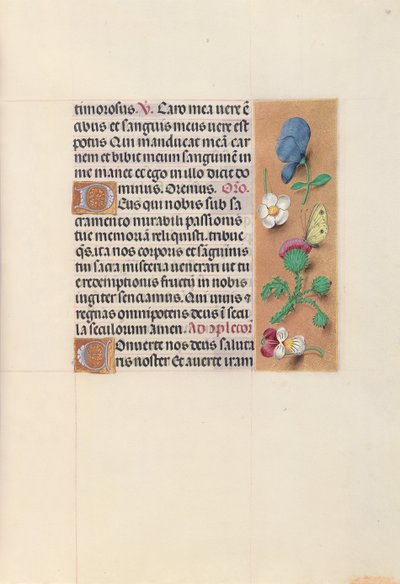 timorosus. V. Caro mea vere ē
cibus et sanguis meus vere est
potus Qui manducat meā car
nem et bibit meum sanguinē in
me manet et ego in illo dicit do
minus. Oremus. Oro.
Deus qui nobis sub sa
cramento mirabili passionis
tue memoriā reliquisti. tribue
qs. ita nos corporis et sāguinis
tui sacra misteria venerari ut tu
e redemptionis fructū in nobis
iugiter senciamus. Qui vivis et
regnas omnipotens deus in secu
la seculorum amen. Ad opletor
Converte nos deus saluta
ris noster Et averte iram